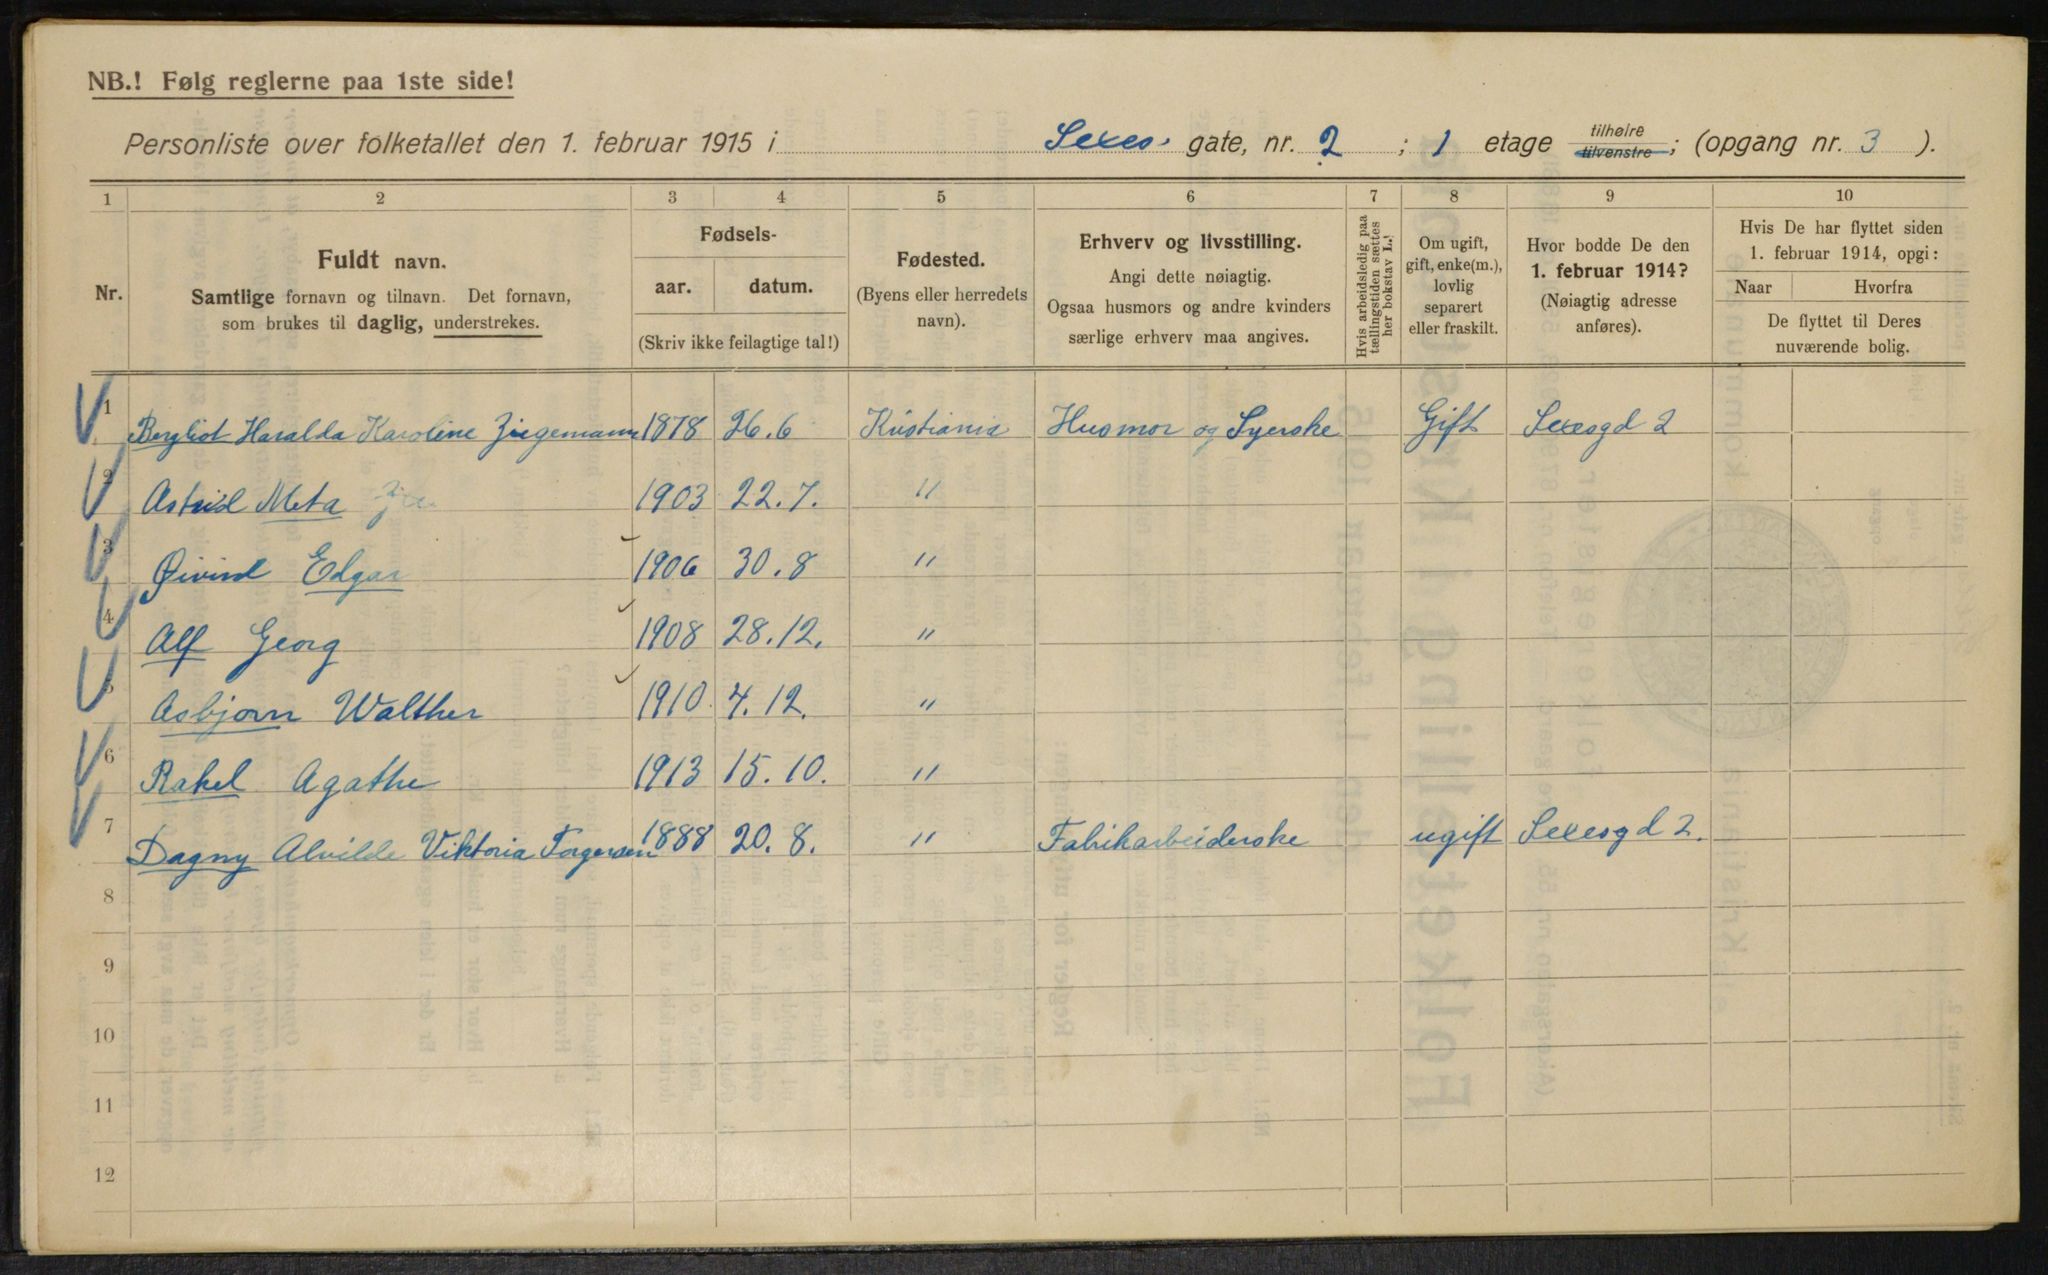 NB.! Følg reglerne paa 1ste side!
Personliste over folketallet den 1. februar 1915 i Sexes gate, nr. 2 ; 1 etage tilhøire tilvenstre; (opgang nr. 3 ).
1 2 3 4 5 6 7 8 9 10
Nr.
Fuldt navn.
Samtlige fornavn og tilnavn. Det fornavn,
som brukes til daglig, understrekes.
Fødsels-
aar. datum.
(Skriv ikke feilagtige tal!)
Fødested.
(Byens eller herredets
navn).
Erhverv og livsstilling.
Angi dette nøiagtig.
Ogsaa husmors og andre kvinders
særlige erhverv maa angives.
Hvis arbeidsledig paa
tællingstiden sættes
her bokstav L.!
Om ugift,
gift, enke(m.),
lovlig
separert
eller fraskilt.
Hvor bodde De den
1. februar 1914?
(Nøiagtig adresse
anføres).
Hvis De har flyttet siden
1. februar 1914, opgi:
Naar Hvorfra
De flyttet til Deres
nuværende bolig.
1 Bergliot Haralda Karoline Ziegemann 1878 26.6 Kristiania Husmor og Syerske Gift Sexesgd 2
2 Astrid Meta 1903 22.7. "
3 Øivind Edgar 1906 30.8 "
4 Alf Georg 1908 28.12. "
5 Asbjørn Walther 1910 4.12. "
6 Rakel Agathe 1913 15.10. "
7 Dagny Alvilde Viktoria Torgersen 1888 20.8. " Fabrikarbeiderske ugift Sexesgd 2.
8
9
10
11
12